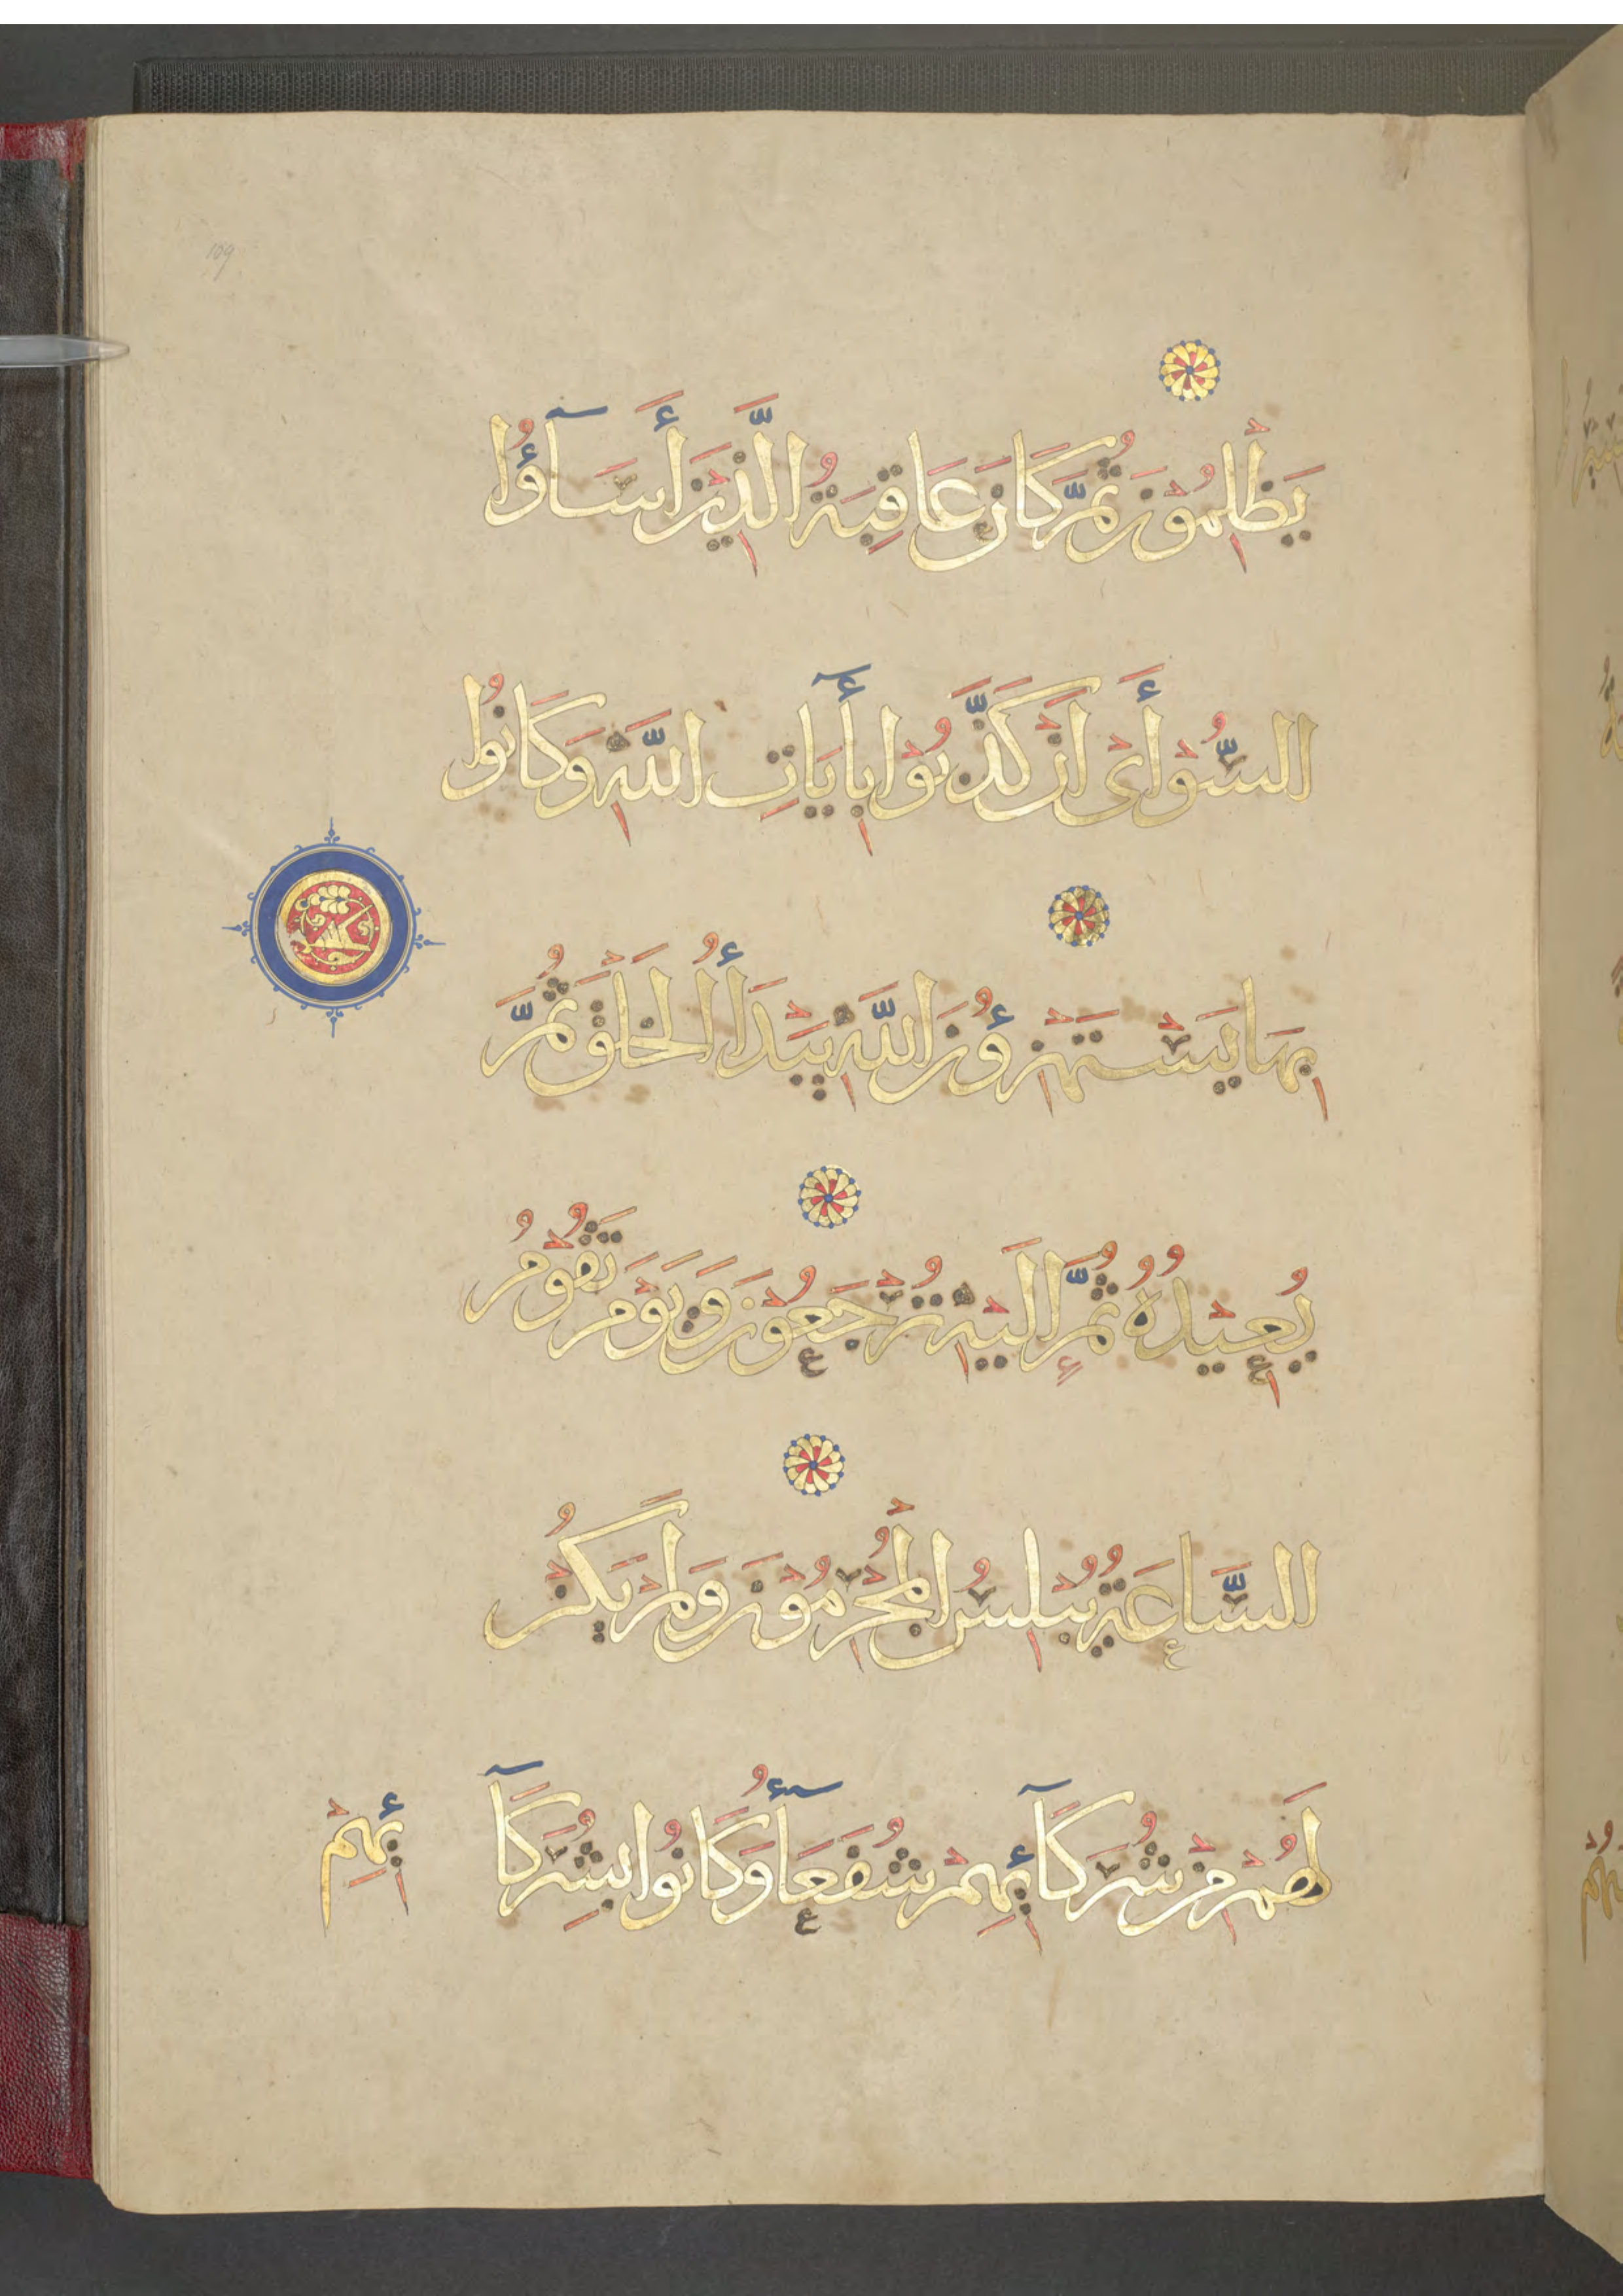 109
يَظْلِمُونَ ثُمَّ كَانَ عَاقِبَةُ الَّذِينَ أَسَآؤُا
السُّوْأَى اَنْ كَذَّبُوْا بِأٓيَاتِ اللَّهِ وَكَانُوا
بِهَا يَسْتَهْزِؤُنَ اللَّهُ يَبْدَأُ الْخَلْقَ ثُمَّ
يُعِيْدُهُ ثُمَّ إِلَيْهِ تُرْجَعُوْنَ وَيَوْمَ تَقُوْمُ
السَّاعَةُ يُبْلِسُ الْمُجْرِمُوْنَ وَلَمْ يَكُنْ
لَهُمْ مِنْ شُرَكَآئِهِمْ شُفَعَآؤُ وَكَانُوا بِشُرَكَآ
ئِهِمْ